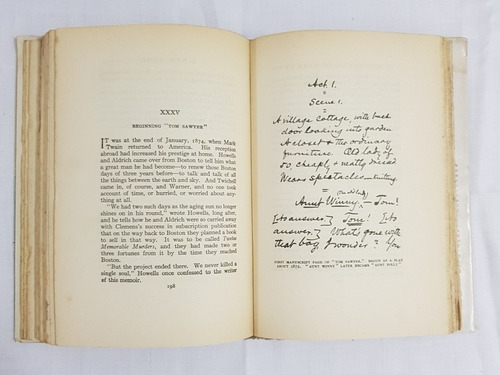 XXXV
BEGINNING "TOM SAWYER"
IT was at the end of January, 1874, when Mark
Twain returned to America. His reception
abroad had increased his prestige at home. Howells
and Aldrich came over from Boston to tell him what
a great man he had become—to renew those Boston
days of three years before—to talk and talk of all
the things between the earth and sky. And Twichell
came in, of course, and Warner, and no one took
account of time, or hurried, or worried about any-
thing at all.
"We had two such days as the aging sun no longer
shines on in his round," wrote Howells, long after,
and he tells how he and Aldrich were so carried away
with Clemens's success in subscription publication
that on the way back to Boston they planned a book
to sell in that way. It was to be called Twelve
Memorable Murders, and they had made two or three
fortunes from it by the time they reached
Boston.
"But the project ended there. We never killed a
single soul," Howells once confessed to the writer
of this memoir.
198
Act 1.
Scene 1.
A village cottage, with back
door looking into garden
A closet & the ordinary
furniture. Old lady of
50, cheaply & neatly dressed
Wears spectacles—knitting.
Aunt Winny.—Tom!
No answer.} Tom! No
answer.} What's gone with
that boy I wonder? You
FIRST MANUSCRIPT PAGE OF "TOM SAWYER." BEGUN AS A PLAY
ABOUT 1872. "AUNT WINNY" LATER BECAME "AUNT POLLY"